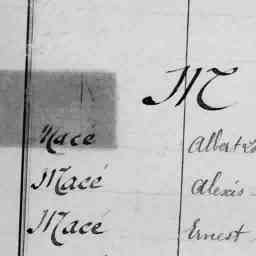 M
Macé Albert
Macé Alexis
Macé Ernest